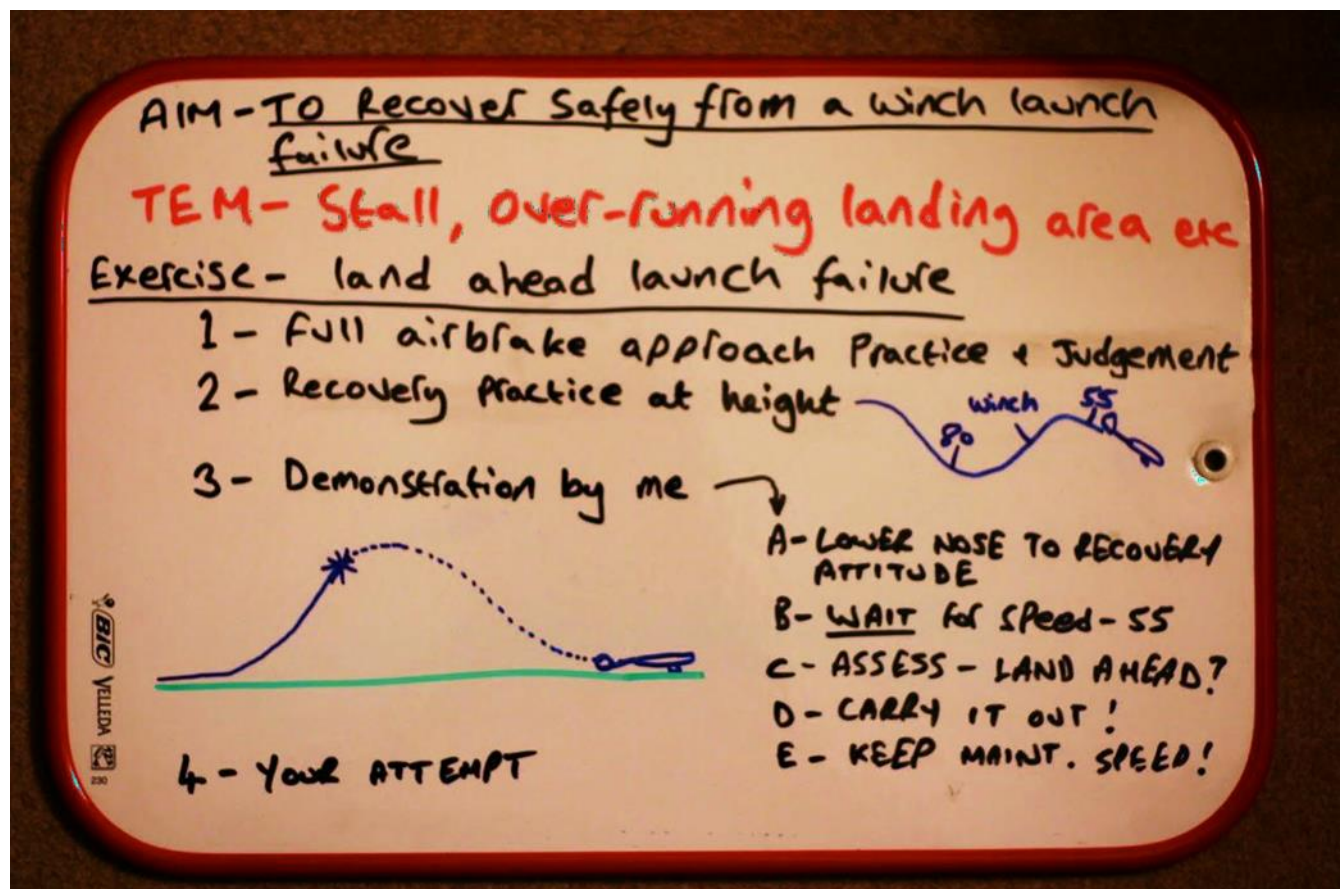 AIM - To Recover Safely from a winch launch
failure
TEM - Stall, over-running landing area etc
Exercise - land ahead launch failure
1 - Full airbrake approach Practice & Judgement
2 - Recovery Practice at height
80 winch 55
3 - Demonstration by me
A - LOWER NOSE TO RECOVERY
ATTITUDE
B - WAIT for speed - 55
C - ASSESS - LAND AHEAD?
D - CARRY IT OUT!
E - KEEP MAINT. SPEED!
4 - Your ATTEMPT
BIC VELLEDA
230